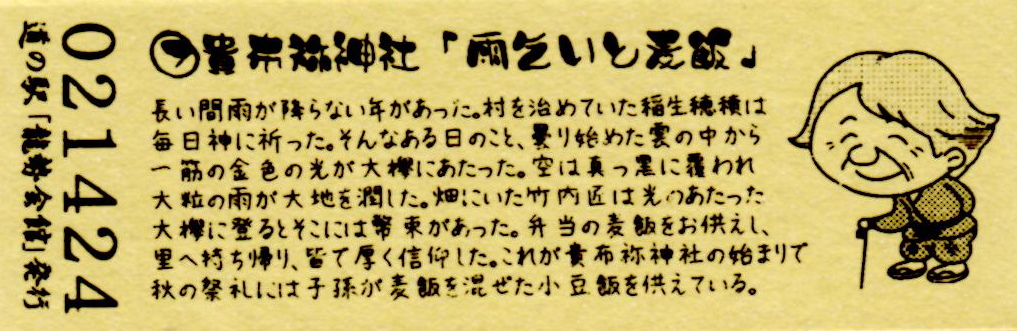 ⑦貴布祢神社「雨乞いと麦飯」
長い間雨が降らない年があった。村を治めていた稲生穂積は
毎日神に祈った。そんなある日のこと、曇り始めた雲の中から
一筋の金色の光が大欅にあたった。空は真っ黒に覆われ
大粒の雨が大地を潤した。畑にいた竹内匠は光のあたった
大欅に登るとそこには幣束があった。弁当の麦飯をお供えし、
里へ持ち帰り、皆で厚く信仰した。これが貴布祢神社の始まりで
秋の祭礼には子孫が麦飯を混ぜた小豆飯を供えている。
021424
道の駅「龍勢会館」発行